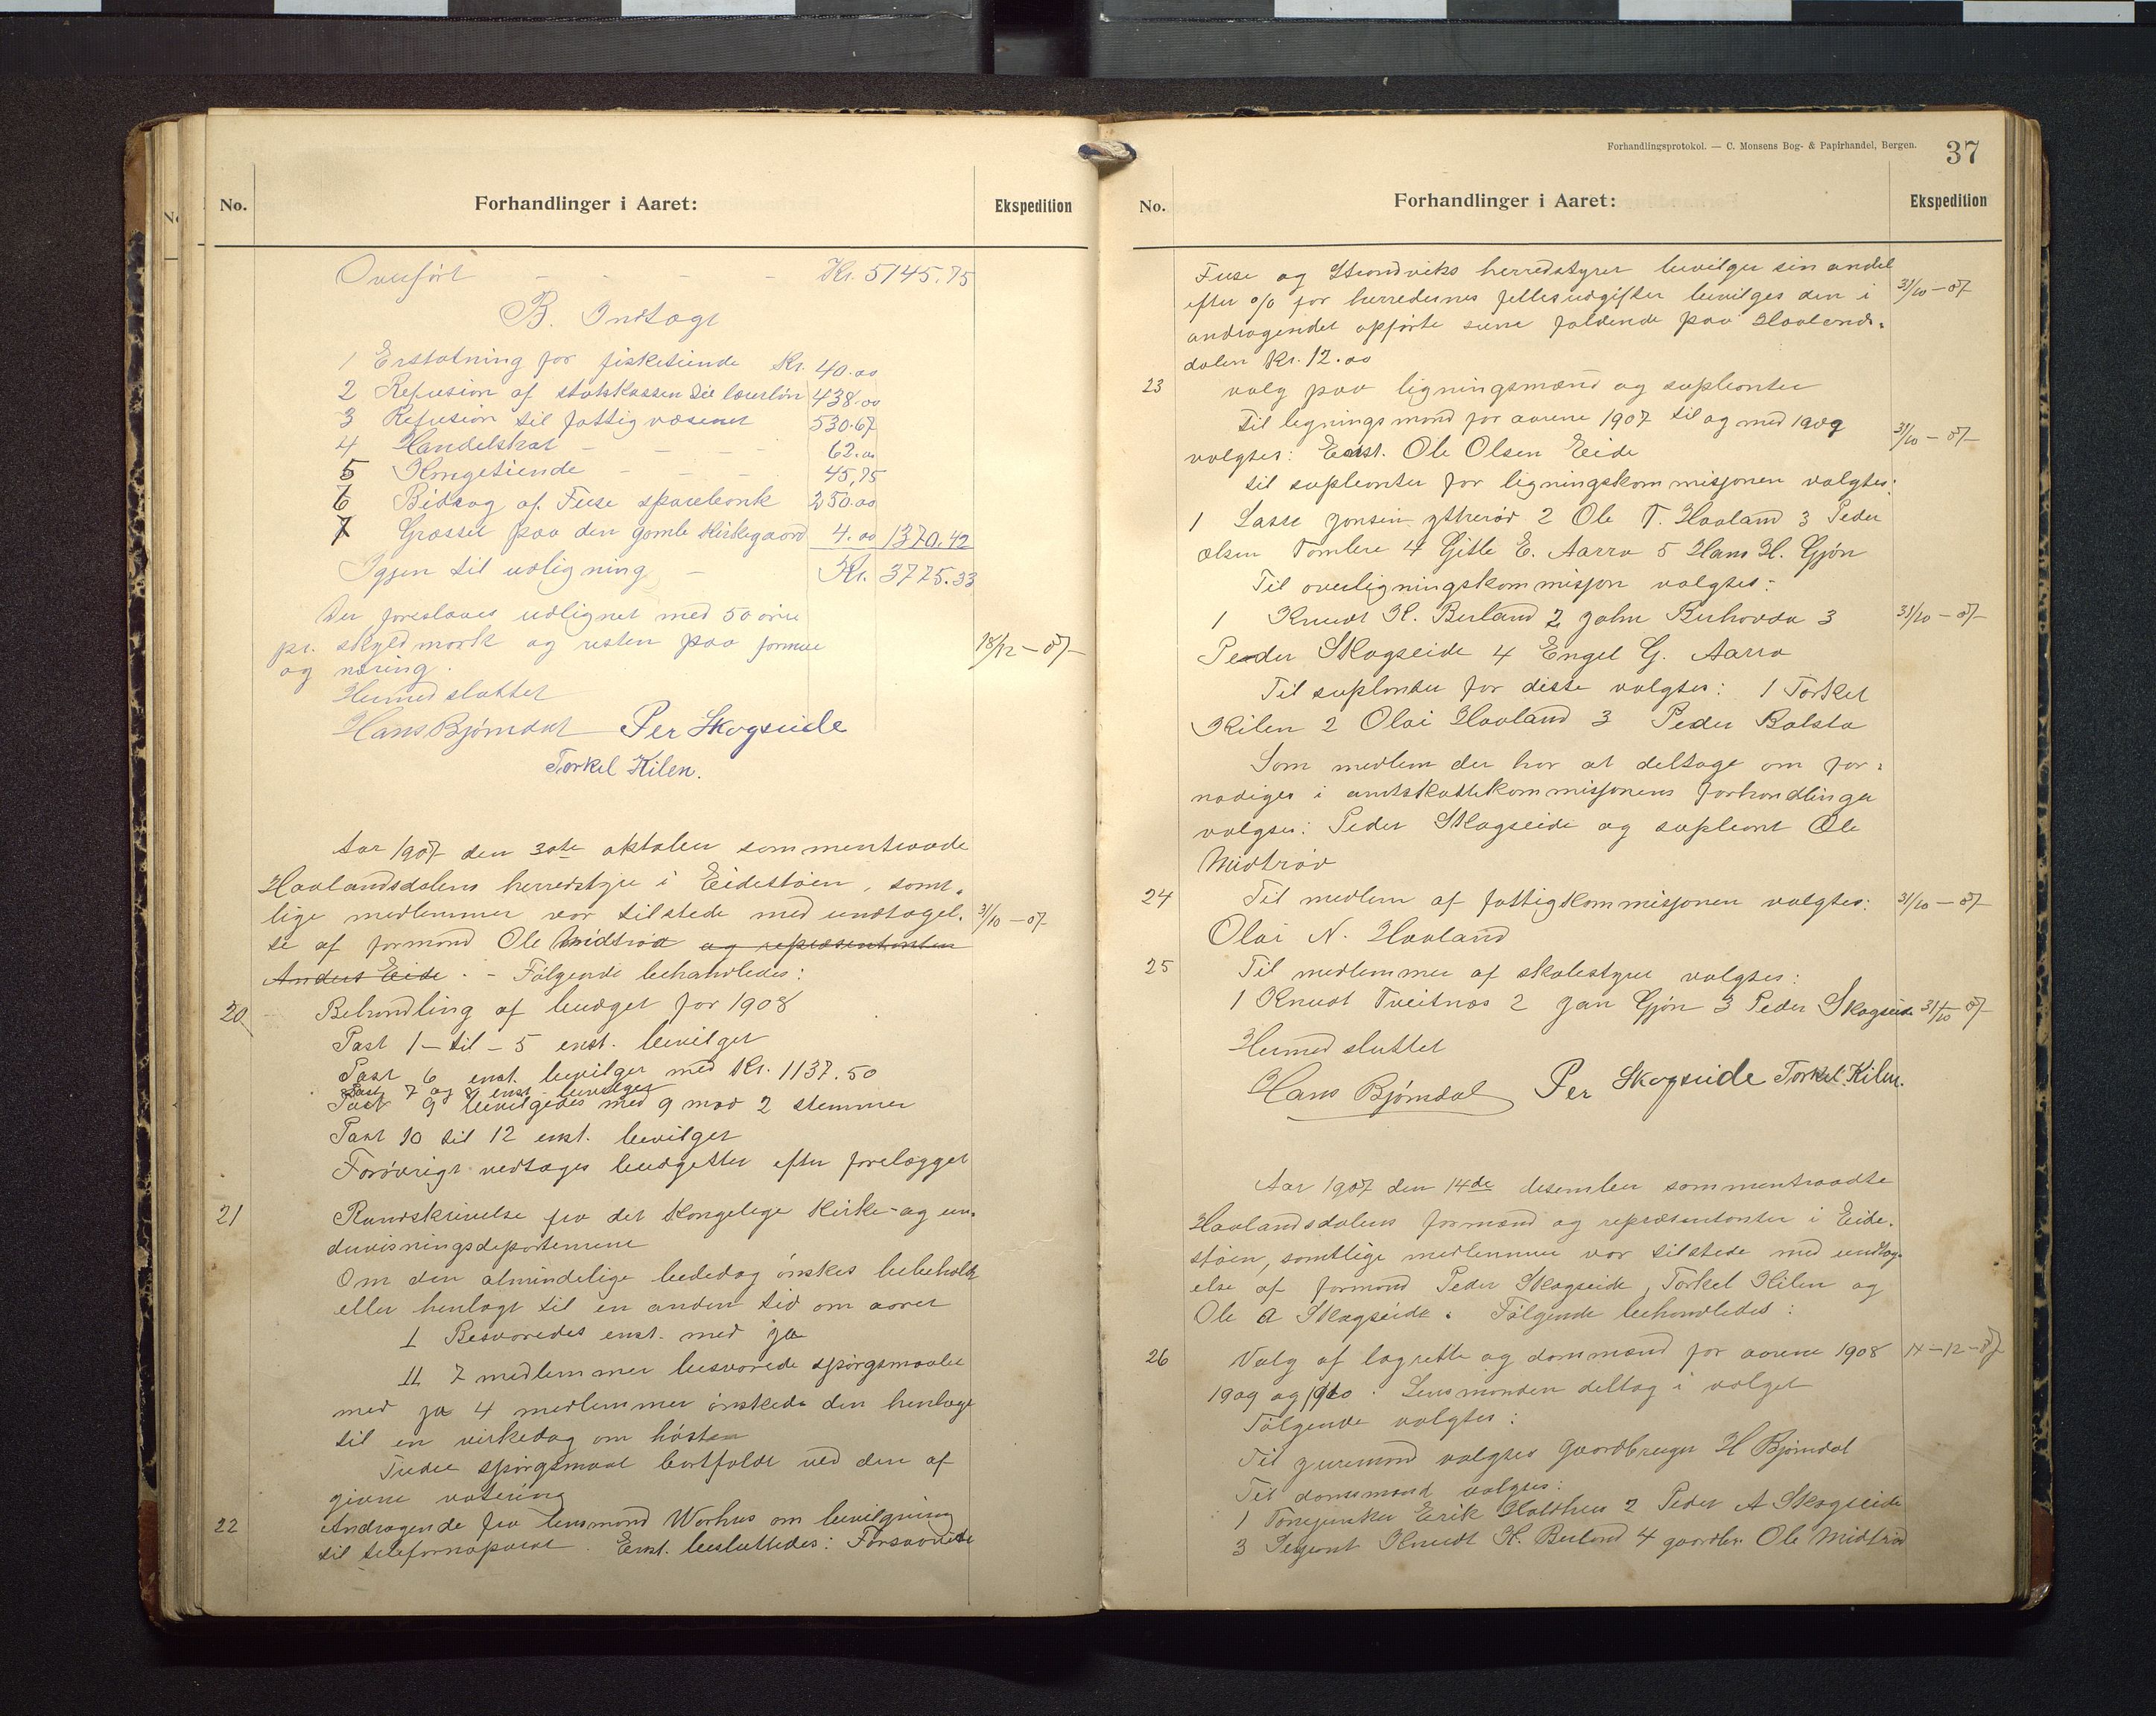 No.
Forhandlinger i Aaret:
Ekspedition
Overført - - - - Kr. 5145.75
B. Indtægt
1 Erstatning for fisketiende Kr. 40.00
2 Refusion af statskassen til lærerløn 438.00
3 Refusion til fattigvæsenet 530.67
4 Handelskat - - - - 62.00
5 Kongetiende - - - 45,75
6 Bidrag af Fuse sparebank 250.00
7 Græsset paa den gamle Kirkegaard 4.00 1370.42
Igjen til udligning - Kr. 3775.33
Der foreslaaes udlignet med 50 øre
pr. skyldmark og resten paa formue
og næring. 18/12-07-
Hermed sluttet
Hans Bjørndal Per Skogseide
Torkel Kilen.
Aar 1907 den 30te oktober sammentraade
Haalandsdalens herredstyre i Eidestøen, samt-
lige medlemmer var tilstede med undtagel- 31/10-07-
se af formand Ole Midtrød og repræsentanten
Anders Eide. - Følgende behandledes:
20 Behandling af budget for 1908
Post 1 - til - 5 enst. bevilget
Post 6 enst. bevilget med Kr. 1137.50
Post 7 og 8 enst. bevilget
Post 9 bevilgedes med 9 mod 2 stemmer
Post 10 til 12 enst. bevilget
Forøvrigt vedtages budgettet efter forelægget
21 Rundskrivelse fra det Kongelige Kirke- og un-
dervisningsdepartement
Om den almindelige bededag ønskes bibeholdt
eller henlagt til en anden tid om aaret
1 Besvaredes enst. med ja
11 7 medlemmer besvarede spørgsmaalet
med ja 4 medlemmer ønskede den henlagt
til en virkedag om høsten
Tredie spørgsmaal bortfaldt ved den af
givne votering
22 Andragende fra lensmand Worhus om bevilgning
til telefonaparat. Enst. besluttedes: Forsaavidt
Forhandlingsprotokol. — C. Monsens Bog- & Papirhandel, Bergen.
37
No.
Forhandlinger i Aaret:
Ekspedition
Fuse og Strandviks herredstyrer bevilger sin andel
efter o/o for herredernes fellesudgifter bevilges den i 31/10-07-
andragendet opførte sum faldende paa Haalands-
dalen Kr. 12.00
23 valg paa ligningsmænd og suplianter
Til ligningsmand for aarene 1907 til og med 1909 31/10-07-
valgtes: Enst. Ole Olsen Eide
til suplianter for ligningskommisjonen valgtes:
1 Lasse Jonsen Ytrerød 2 Ole T. Haaland 3 Peder
Olsen Tømlere 4 Gitle E. Aarra 5 Hans H. Gjøn
Til overligningskommisjon valgtes:
1 Knudt K. Berland 2 John Berhovda 3 31/10-07-
Peder Skogseide 4 Engel G. Aarra
Til suplianter for disse valgtes: 1 Torkel
Kilen 2 Olai Haaland 3 Peder Bolsta
Som medlem der har at deltage om for-
nødiges i amtskattekommisjonens forhandlinger
valgtes: Peder Skogseide og supliant Ole
Midtrød
24 Til medlem af fattigkommisjonen valgtes: 31/10-07-
Olai N. Haaland
25 Til medlemmer af skolestyret valgtes:
1 Knudt Tveitnes 2 Jan Gjøn 3 Peder Skogseide 31/10-07-
Hermed sluttet
Hans Bjørndal Per Skogseide Torkel Kilen.
Aar 1907 den 14de desember sammentraadte
Haalandsdalens formænd og repræsentanter i Eide-
støen, samtlige medlemmer var tilstede med undtag-
else af formænd Peder Skogseide, Torkel Kilen og
Ole A Skogseide. Følgende behandledes:
26 Valg af lagrette og domsmænd for aarene 1908 14-12-07
1909 og 1910. Lensmanden deltog i valget
Følgende valgtes:
Til jurymand valgtes gaardbruger H Bjørndal
Til domsmænd valgtes:
1 Erik Holdhus 2 Peder A Skogseide
3 Sergent Knudt K. Berland 4 gaardbr. Ole Midtrød